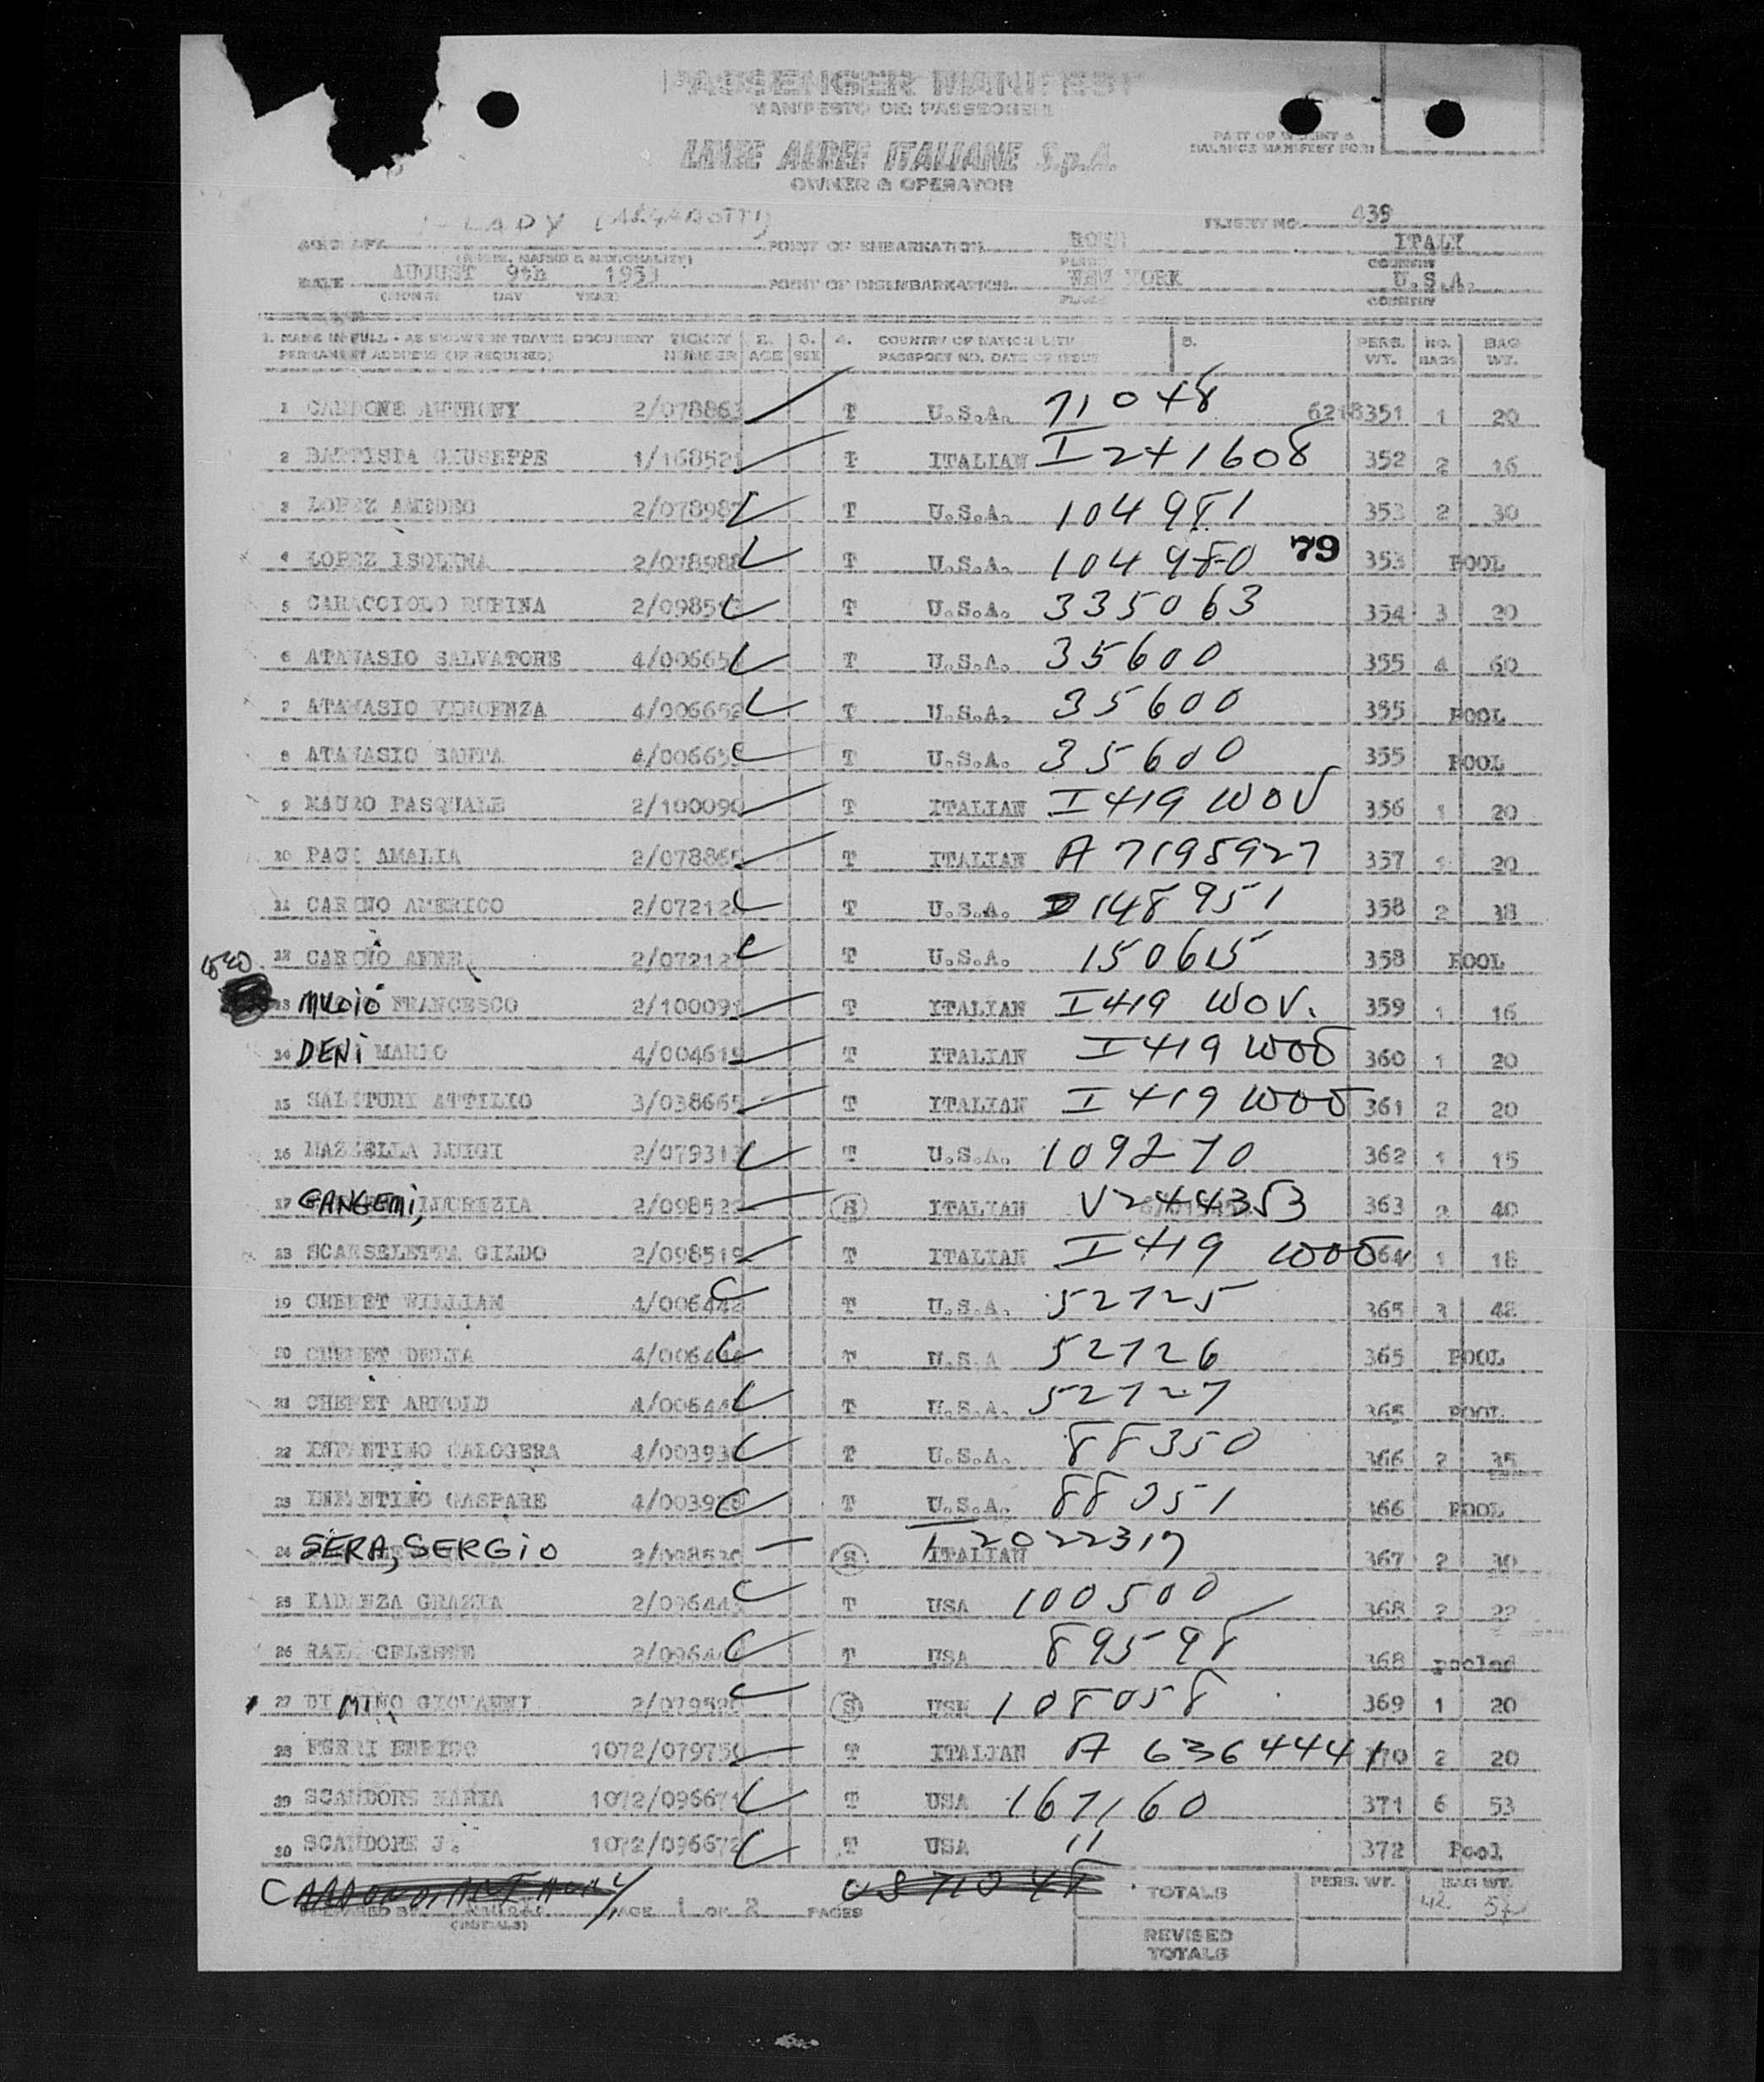 PASSENGER MANIFEST
MANIFESTO DEI PASSEGGERI
LINEE AEREE ITALIANE S.p.A.
OWNER & OPERATOR
PART OF WEIGHT &
BALANCE MANIFEST FORM
I-LADY FLIGHT NO. 439
AIRCRAFT POINT OF EMBARKATION ROME ITALY
(MAKE, MARKS & NATIONALITY) PLACE COUNTRY
DATE AUGUST 9th 1953 POINT OF DISEMBARKATION NEW YORK U.S.A.
(MONTH DAY YEAR) PLACE COUNTRY
1. NAME IN FULL - AS SHOWN IN TRAVEL DOCUMENT TICKET 2. 3. 4. COUNTRY OF NATIONALITY 5. PERS. NO. BAG
PERMANENT ADDRESS (IF REQUIRED) NUMBER AGE SEX PASSPORT NO. DATE OF ISSUE WT. BAGS WT.
1 CARDONE ANTHONY 2/078863 T U.S.A. 71048 6218351 1 20
2 BATTISTA GIUSEPPE 1/168521 T ITALIAN I241608 352 2 16
3 LOPEZ AMEDEO 2/078987 T U.S.A. 104981 353 2 30
4 LOPEZ ISOLINA 2/078988 T U.S.A. 104980 79 353 POOL
5 CARACCIOLO RUFINA 2/0985 T U.S.A. 335063 354 3 20
6 ATANASIO SALVATORE 4/00665 T U.S.A. 35600 355 4 60
7 ATANASIO VINCENZA 4/006652 T U.S.A. 35600 355 POOL
8 ATANASIO SANTA 4/00665 T U.S.A. 35600 355 POOL
9 MAURO PASQUALE 2/100090 T ITALIAN I419 WOV 356 1 20
10 PACI AMALIA 2/07886 T ITALIAN A7195927 357 1 20
11 AMERICO 2/07212 T U.S.A. 148951 358 2 38
12 ANNE 2/07212 T U.S.A. 150615 358 POOL
13 FRANCESCO 2/100091 T ITALIAN I419 WOV. 359 1 16
14 DENI MARIO 4/004619 T ITALIAN I419 WOV 360 1 20
15 SALITURI ATTILIO 3/038665 T ITALIAN I419 WOV 361 2 20
16 MAZZELLA LUIGI 2/07931 T U.S.A. 109270 362 1 15
17 GANGEMI, LUCREZIA 2/098522 S ITALIAN V244353 363 2 40
18 SCARSELETTA GILDO 2/098519 T ITALIAN I419 WOV 364 1 18
19 CHEBET WILLIAM 4/006442 T U.S.A. 52725 365 3 48
20 CHEBET DELIA 4/00644 T U.S.A 52726 365 POOL
21 CHEBET ARNOLD 4/00644 T U.S.A. 52727 365 POOL
22 INFANTINO CALOGERA 4/00393 T U.S.A. 88350 366 2 35
23 INFANTINO GASPARE 4/003928 T U.S.A. 88351 366 POOL
24 SERA, SERGIO 2/0985 S ITALIAN I2022317 367 2 30
25 GRAZIA 2/09644 T USA 100500 368 2 22
26 CELESTE 2/09644 T USA 89598 368 pooled
27 DI MINO GIOVANNI 2/07958 S USA 108058 369 1 20
28 FERRI ENRICO 1072/079750 T ITALIAN A 6364441 370 2 20
29 SCANDORE MARIA 1072/096671 T USA 167160 371 6 53
30 SCANDORE J. 1072/096672 T USA " 372 Pool
TOTALS PERS. WT. BAG WT.
42
PREPARED BY PAGE 1 OF 2 PAGES
(INITIALS)
REVISED
TOTALS